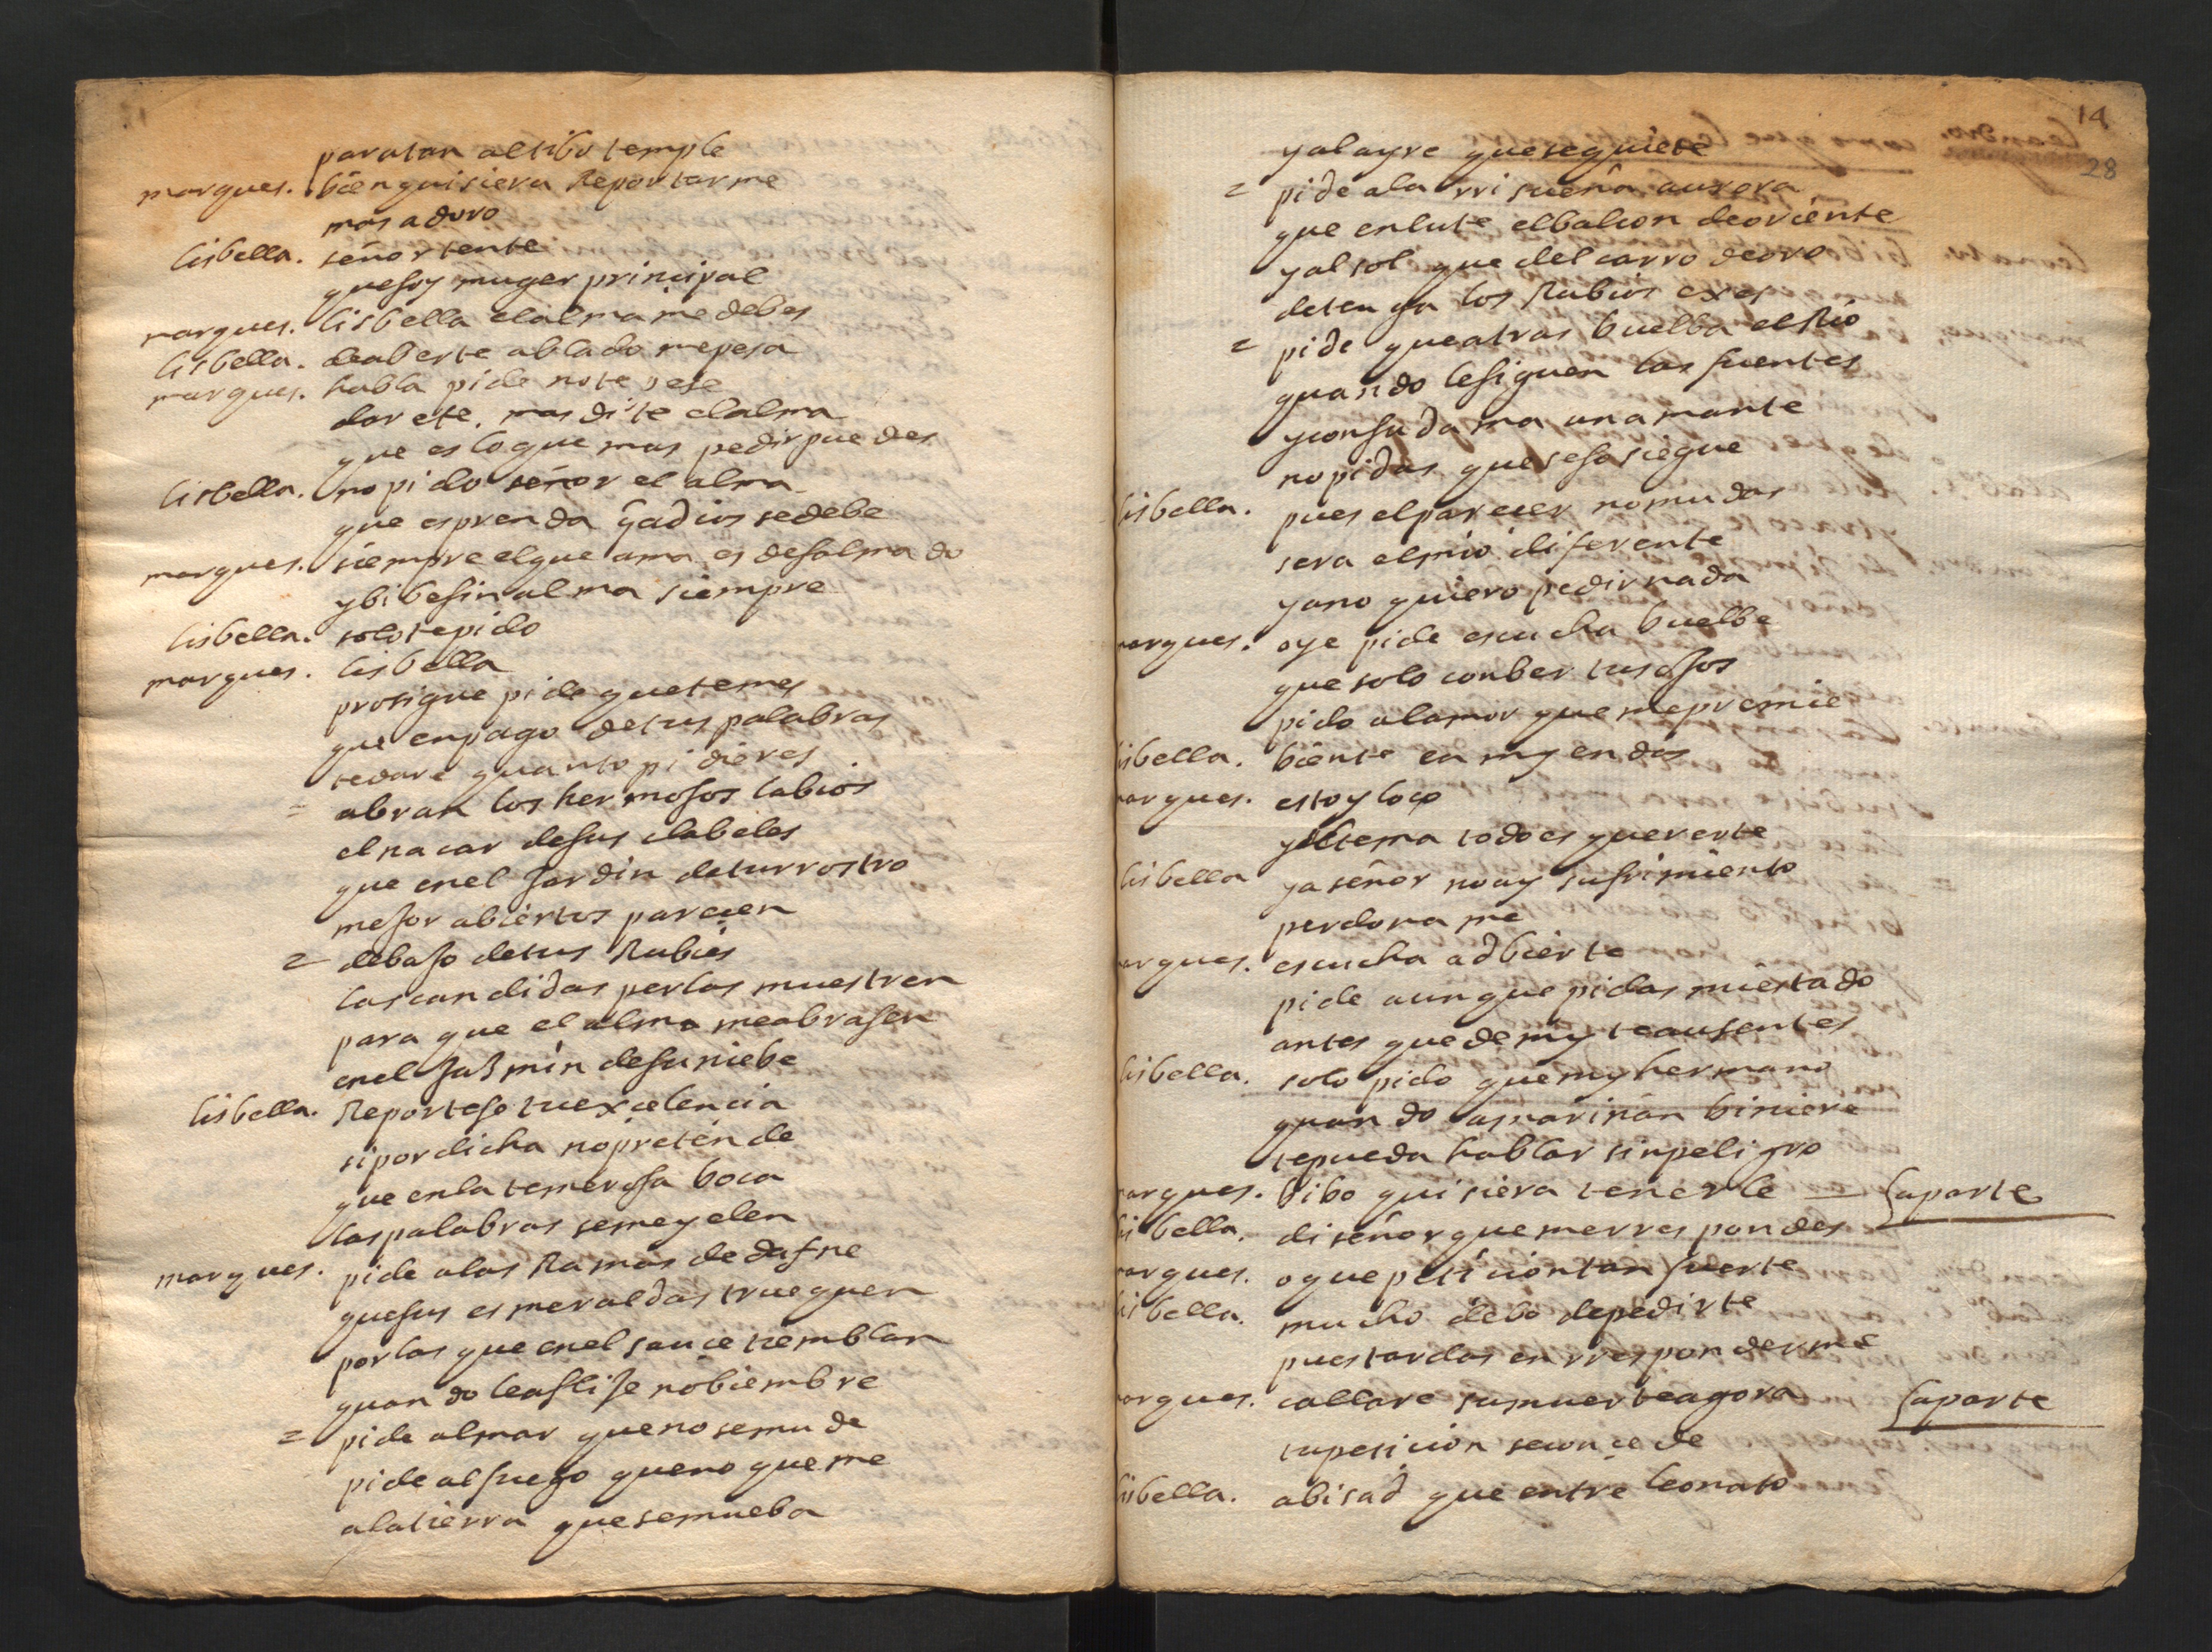 paratan altibo temple
marques. bien quisiera Reportarme
mas adoro
lisbella. señor tente
que soy muger principal
marques. lisbella el alma me debes
lisbella. de aberte ablado me pesa
marques. habla pide no te pese
darete. mas di te el alma
que es lo que mas pedir puedes
lisbella. no pido señor el alma
que es prenda q̃ a dios se debe
marques. siempre el que ama es desalmado
y bibe sin alma siempre
lisbella. solo te pido
marques. lisbella
prosigue pide que temes
que en pago de tus palabras
te dare quanto pidieres
= abran los hermosos labios
el nacar de sus clabeles
que en el jardin de turrostro
mejor abiertos parecen
= debajo de tus Rubies
las candidas perlas muestren
para que el alma me abrasen
en el jazmin de su niebe
lisbella. Reportese tu excelencia
si por dicha no pretende
que en la temerosa boca
las palabras se me yelen
marques. pide a las Ramas de dafne
que sus esmeraldas truequen
por las que en el sauce tiemblan
quando le aflije nobiembre
= pide al mar que no se mude
pide al fuego que no queme
a la tierra que se mueba
14
28
y al ayre que se quiete
= pide a la rrisueña aurora
que enlute el balcon de oriente
y al sol que del carro de oro
detenga los Rubios exes
= pide que atras buelba el Rio
quando le siguen las fuentes
y con su dama un amante
no pidas que se sosiegue
lisbella. pues el parecer no mudas
sera el mio diferente
ya no quiero pedir nada
marques. oye pide escucha buelbe
que solo con ber tus ojos
pido al amor que me premie
lisbella. biente en my en dos
marques. estoy loco
y el tema todo es quererte
lisbella ya señor no ay sufrimiento
perdona me
marques. escucha adbierte
pide aunque pidas mi estado
antes que de my te ausentes
lisbella. solo pido que my hermano
quando a mariñan biniere
te pueda hablar sin peligro
marques. bibo quisiera tenerle — aparte
lisbella. di señor que me rrespondes
marques. o que peticion tan fuerte
lisbella. mucho debo de pedirte
pues tardas en rresponderme
marques. callare su muerte agora aparte
tu peticion se concede
lisbella. abisad que entre leonato